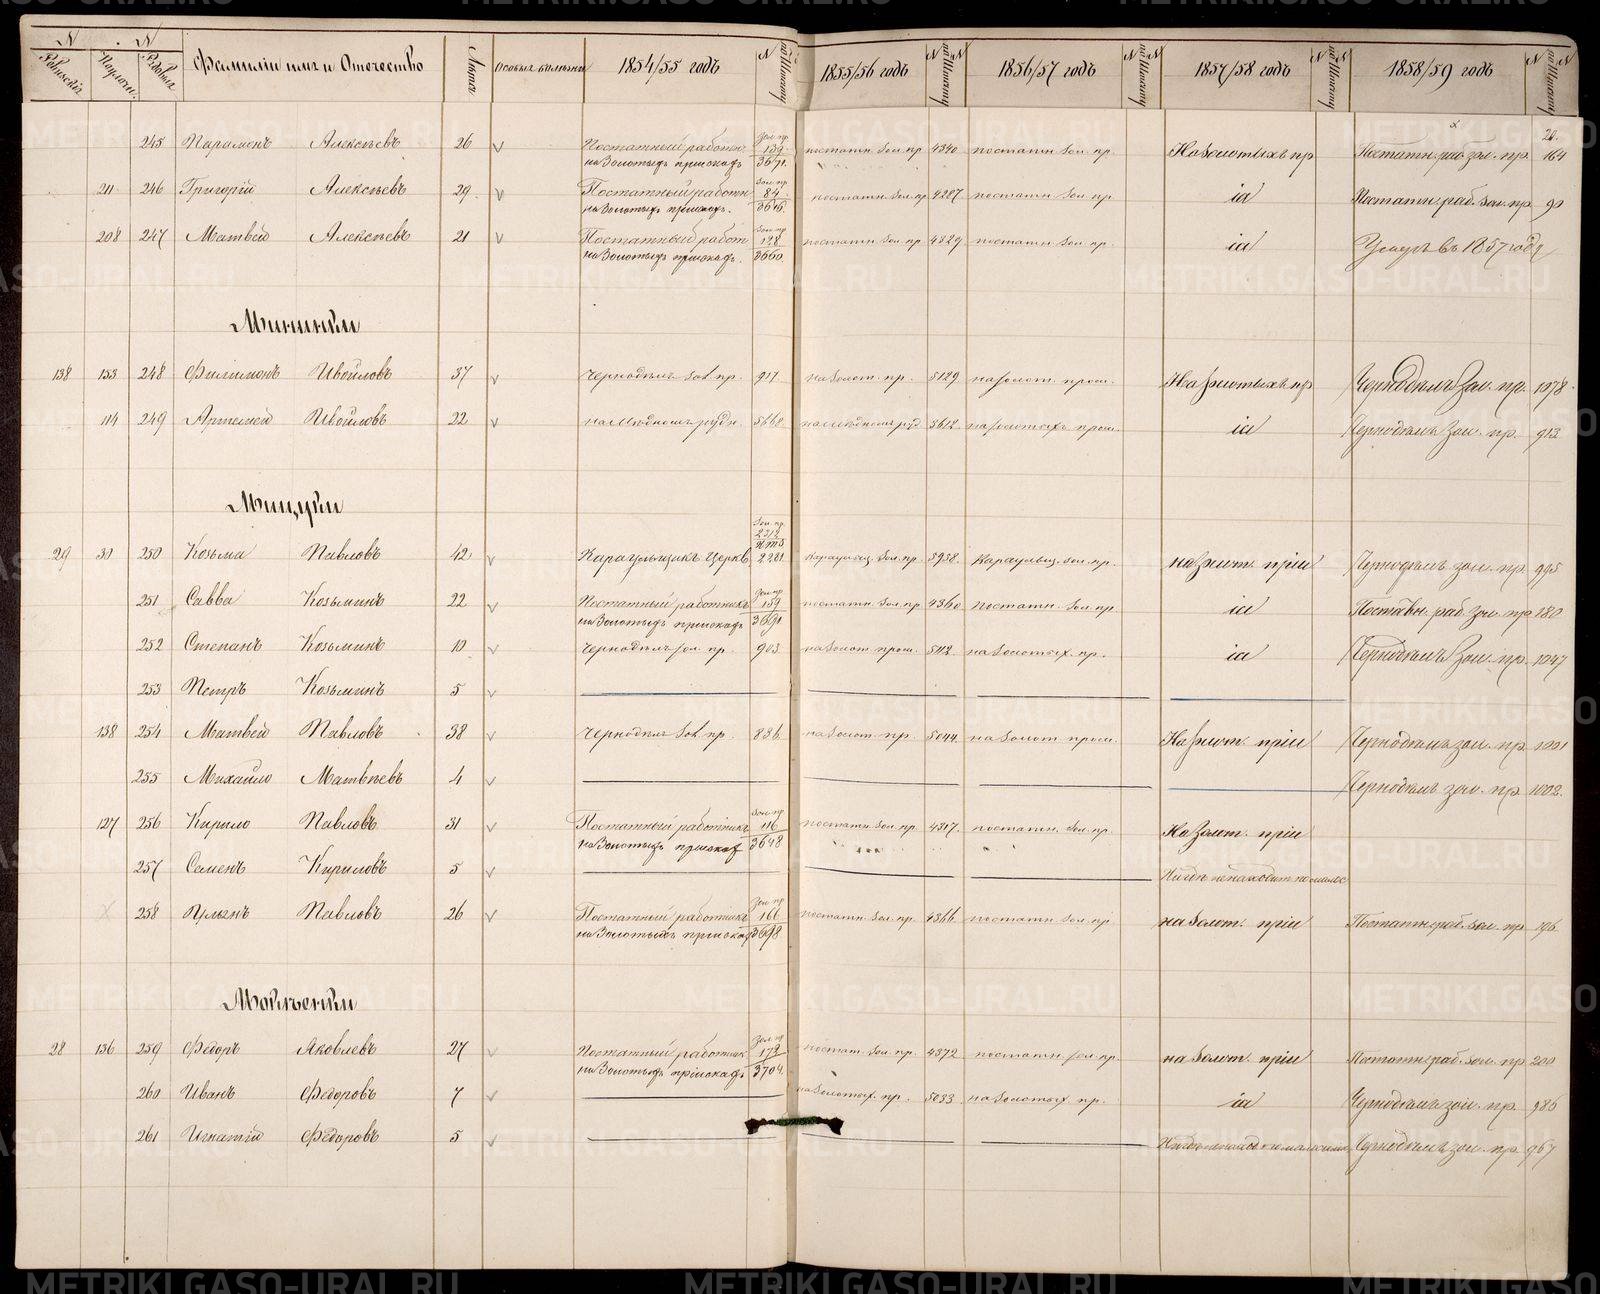 N N
Ревизскій Подушн. Рядовыя Фамиліи имя и Отечество Лѣта Особыя 1854/55 годъ N по Штату 1855/56 годъ N по Штату 1856/57 годъ N по Штату 1857/58 годъ N по Штату 1858/59 годъ N по Штату
245 Парамонъ Алексѣевъ 26 Постатный работн. Зол. пр. 159 постатн. Зол. пр. 4340 постатн. Зол. пр. На золотыхъ пр Постатн. раб. зол. пр. 164
на Золотыхъ пріискахъ 3691
211 246 Григорій Алексѣевъ 29 Постатный работн Зол. пр. 84 постатн. Зол. пр. 4287 постатн. Зол. пр. id Постатн. раб. зол. пр. 90
на Золотыхъ пріискахъ. 3616
208 247 Матвей Алексѣевъ 21 Постатный работ Зол. пр. 128 постатн. Зол. пр. 4329 постатн. Зол. пр. id Умеръ въ 1857 годѣ
на Золотыхъ пріискахъ. 3660
Минины
138 153 248 Филимонъ Ивойловъ 37 Чернодѣл. Зол. пр. 917 на Золот. пр. 5129 на золот. пром. На золотыхъ пр Чернодѣлъ Зол. пр. 1078
114 249 Артемей Ивойловъ 22 на мѣдномъ рудн. 5668 на мѣдномъ руд. 5612 на золотыхъ пром. id Чернодѣлъ Зол. пр. 913
29 30 250 Козьма Павловъ 42 Караульщикъ Церкв. 2281 Караульщ. Зол. пр. 3938 Караульщ. Зол. пр. на Золот. пріи Чернодѣлъ зол. пр. 995
251 Савва Козьминъ 22 Постатный работникъ Зол. пр. 159 постатн. Зол. пр. 4360 постатн. Зол. пр. id Постатн. раб. зол. пр. 180
на Золотыхъ пріискахъ 3691
252 Степанъ Козьминъ 10 Чернодѣлъ зол. пр. 903 на Золот. пром. 5112 на Золотых. пр. id Чернодѣлъ Зол. пр. 1047
253 Петръ Козьминъ 5
138 254 Матвей Павловъ 38 Чернодѣлъ Зол. пр. 836 на Золот. пр. 5044 на Золот. пром. На Золот. пріи Чернодѣлъ зол. пр. 1001
255 Михайло Матвѣевъ 4 Чернодѣлъ зол. пр. 1002
127 256 Кирило Павловъ 31 Постатный работникъ Зол. пр. 116 постатн. Зол. пр. 4317 постатн. Зол. пр. На Золот. пріи
на Золотыхъ пріискахъ 3648
257 Семенъ Кириловъ 5
258 Ульянъ Павловъ 26 Постатный работникъ Зол. пр. 166 постатн. Зол. пр. 4366 постатн. Зол. пр. на Золот. пріи Постатн. раб. зол. пр. 196
на Золотыхъ пріискахъ 3698
28 136 259 Федоръ Яковлевъ 27 Постатный работник Зол. пр. 172 постат. Зол. пр. 4372 постатн. зол. пр. на Золот. пріи Постатн. раб. зол. пр. 200
на Золотыхъ пріискахъ 3704
260 Иванъ Федоровъ 7 на Золотых. пр. 5033 на Золотых. пр. id Чернодѣлъ зол. пр. 986
261 Игнатій Федоровъ 5 Чернодѣлъ зол. пр. 967
METRIKI.GASO-URAL.RU